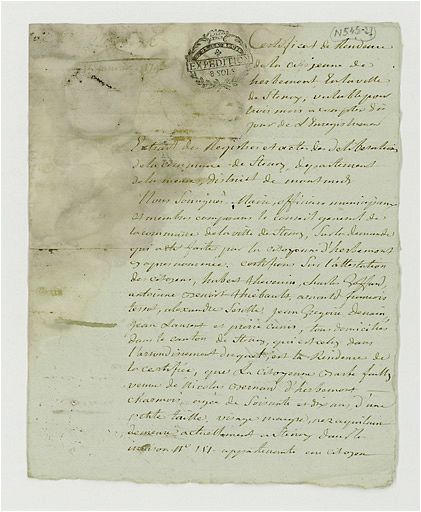 N545-21
Certificat de Residence
de la citoyenne de
herbemont en la ville
de Stenay, valable pour
trois mois à compter du
jour de l'Enregistrement
EXPEDITION
8 SOLS
Extrait des Registres et actes de deliberation
de la commune de Stenay, departement
de la meuse, district de montmedy
Nous Soussignés Maire, officiers municipaux
et membres composans le conseil general de
la commune de la ville de Stenay, Sur la demande
qui a été faite par la citoyenne d'herbemont
cy apres nommée. certifions Sur l'attestation
des citoyens, hubert thevenin, charles
antoine benoit thiebault, arnould francois
alexandre jean Gregoire
jean Laurent et pierre tous domiciliés
dans le canton de Stenay, qui est celui dans
l'arrondissement duquel est la Residence de
la certifiée, que La Citoyenne
veuve de Nicolas d'herbemont
charmois, agée de Soixante et dix ans, d'une
petite taille, visage maigre, nez aquilain
demeure actuellement a Stenay dans la
maison N° 151 appartenante au citoyen